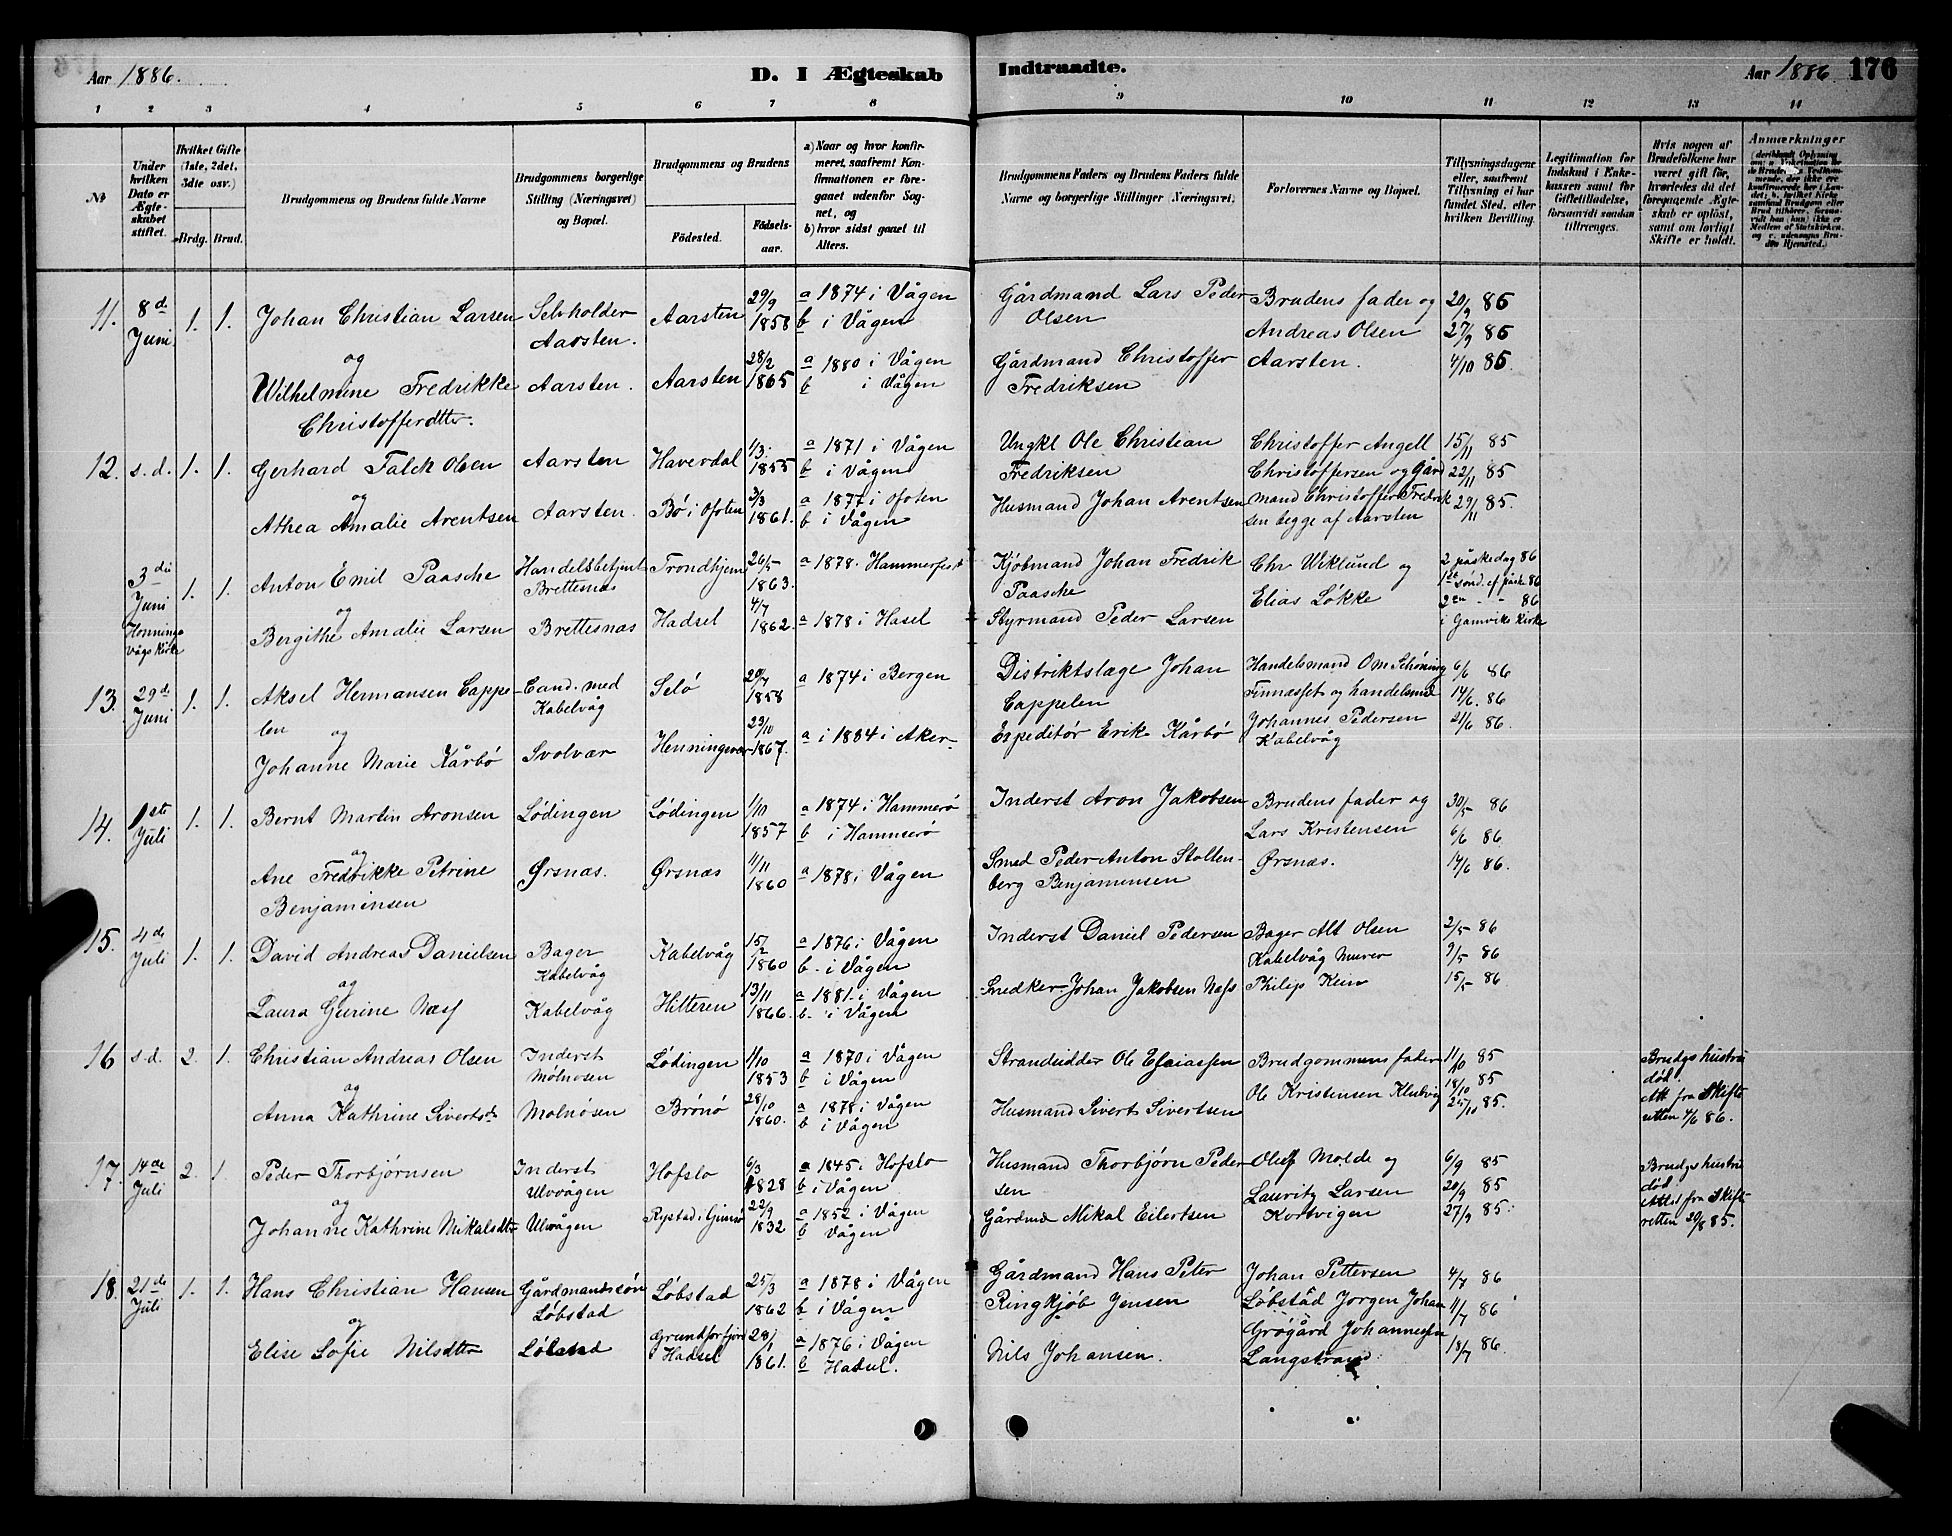 Aar 1886.
D. I Ægteskab
Indtraadte.
Aar 1886 176
1 2 3 4 5 6 7 8 9 10 11 12 13 14
No
Under hvilken Dato er Ægteskabet stiftet.
Hvilket Gifte (1ste, 2det, 3die osv.)
Brdg. Brud.
Brudgommens og Brudens fulde Navne
Brudgommens borgerlige Stilling (Næringsvei) og Bopæl.
Brudgommens og Brudens
Fødested. Fødselsaar.
a) Naar og hvor konfirmeret, saafremt Konfirmationen er foregaaet udenfor Sognet, og
b) hvor sidst gaaet til Alters.
Brudgommens Faders og Brudens Faders fulde Navne og borgerlige Stillinger (Næringsvei).
Forlovernes Navne og Bopæl.
Tillysningsdagene eller, saafremt Tillysning ei har fundet Sted, efter hvilken Bevilling.
Legitimation for Indskud i Enkekassen samt for Giftetilladelse, forsaavidt saadan tiltrænges.
Hvis nogen af Brudefolkene har været gift før, hvorledes da det foregaaende Ægteskab er opløst, samt om lovligt Skifte er holdt.
Anmærkninger
11. 8de Juni 1. 1. Johan Christian Larsen Selvholder Aarsten. Aarsten 29/9 1858 a 1874 i Vågen b i Vågen Gårdmand Lars Peder Olsen Brudens fader og Andreas Olsen Aarsten. 20/9 85 27/9 85 4/10 85.
og
Wilhelmine Fredrikke Christofferdtter. Aarsten. Aarsten 28/2 1865 a 1880 i Vågen b i Vågen Gårdmand Christoffer Fredriksen
12. s.d. 1. 1. Gerhard Falck Olsen Aarsten Haverdal 1/3 1855 a 1871 i Vågen b i Vågen Ungkl Ole Christian Fredriksen Christoffer Angell Christoffersen og Gårdmand Christoffer Fredriksen begge af Aarsten 15/11 85 22/11 85 29/11 85.
og
Athea Amalie Arentsen Aarsten. Bø i Ofoten 3/3 1861. a 1877 i Ofoten b i Vågen Husmand Johan Arentsen
3die Juni Henningsvågs Kirke 1. 1. Anton Emil Paasche Handelsbetjent Brettesnæs Trondhjem 26/5 1863. a 1878. Hammerfest Kjøbmand Johan Fredrik Paasche Chr Wiklund og Elias Løkke 2 påskedag 86 1ste sønd. ef påske 86 2en - - 86 i Gamvik Kirke
og
Bergithe Amalie Larsen Brettesnæs Hadsel 4/7 1862. a 1878 i Hasel Styrmand Peder Larsen
13. 29de Juni 1. 1. Aksel Hermansen Cappelen Cand. med Kabelvåg Selø 20/7 1858 a 1874 i Bergen Distriktslæge Johan Cappelen Handelsmand O M Schøning Finnæsset og handelsmd Johannes Pedersen Kabelvåg 6/6 86 14/6. 86 21/6 86.
og
Johanne Marie Kårbø Svolvær Henningsvær 23/10 1867. a i 1884 i Aker Expeditør Erik Kårbø
14. 1ste Juli 1. 1. Bernt Martin Aronsen Lødingen Lødingen 1/10 1857 a 1874 i Hammerø b i Hammerø Inderst Aron Jakobsen Brudens fader og Lars Kristensen Ørsnæs. 30/5 86 6/6 86 14/6 86.
og
Ane Fredrikke Petrine Benjaminsen Ørsnæs. Ørsnæs 11/11 1860 a 1878 i Vågen Smed Peder Anton Stoltenberg Benjaminsen
15. 4de Juli 1. 1. David Andreas Danielsen Bager Kabelvåg Kabelvåg 15/2 1860 a 1876 i Vågen b. i Vågen Inderst Daniel Pedersen Bager Alt Olsen Kabelvåg Murer Philip Kein 2/5 86 9/5 86 15/5 86.
og
Laura Gurine Næss Kabelvåg Hitteren 13/11 1866. a 1881. i Vågen b. i Vågen Snedker Johan Jakobsen Næss
16 s.d. 2. 1. Christian Andreas Olsen Inderst Mølnosen Lødingen 1/10 1853 a 1870 i Vågen b i Vågen Strandsidder Ole Esaiassen Brudgommens fader Ole Kristensen 11/10 85 18/10 85 25/10 85. Brudgs hustru død. Att fra Skifteretten 4/6 86.
og
Anna Kathrine Sivertsd. Molnosen Brønø 28/10 1860. a 1878 i Vågen b i Vågen Husmand Sivert Sivertsen
17. 14de Juli 2. 1. Peder Thorbjørnsen Inderst Ulvvågen Hofslo 6/3 1828 a 1845 i Hofslo b i Vågen Husmand Thorbjørn Pedersen Oluf Molde og Lauritz Larsen Kortvigen 6/9 85 20/9 85 27/9 85. Brudgs hustru død Attest fra Skifteretten 20/8 85.
og
Johanne Kathrine Mikalsdtr Ulvågen Rystad i Gimsø 22/9 1832 a 1852 i Vågen b Vågen Gårdmd Mikal Eilertsen
18. 21de Juli 1. 1. Hans Christian Hansen Gårdmandssøn Løbstad Løbstad 25/3 1862 a 1878 i Vågen b i Vågen Gårdmand Hans Peter Ringkjøb Jensen Johan Pettersen Løbstad Jørgen Johan Grøgård Johannessen Langstrand 4/7 86 11/7 86 18/7 86.
og
Elise Sofie Nilsdtr Løbstad Grundforfjord Hadsel 28/1 1861. a 1876 i Vågen b Hadsel. Nils Johansen.